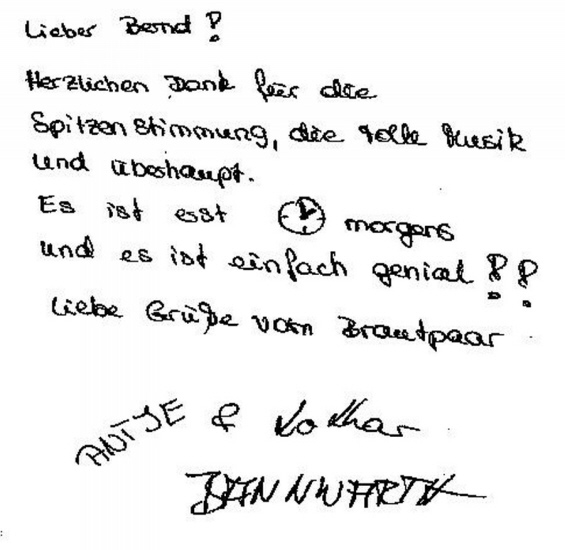 Lieber Bernd!
Herzlichen Dank für die
Spitzenstimmung, die tolle Musik
und überhaupt.
Es ist erst morgens
und es ist einfach genial!!
Liebe Grüße vom Brautpaar
ANTJE & Lothar
BANNWARTH